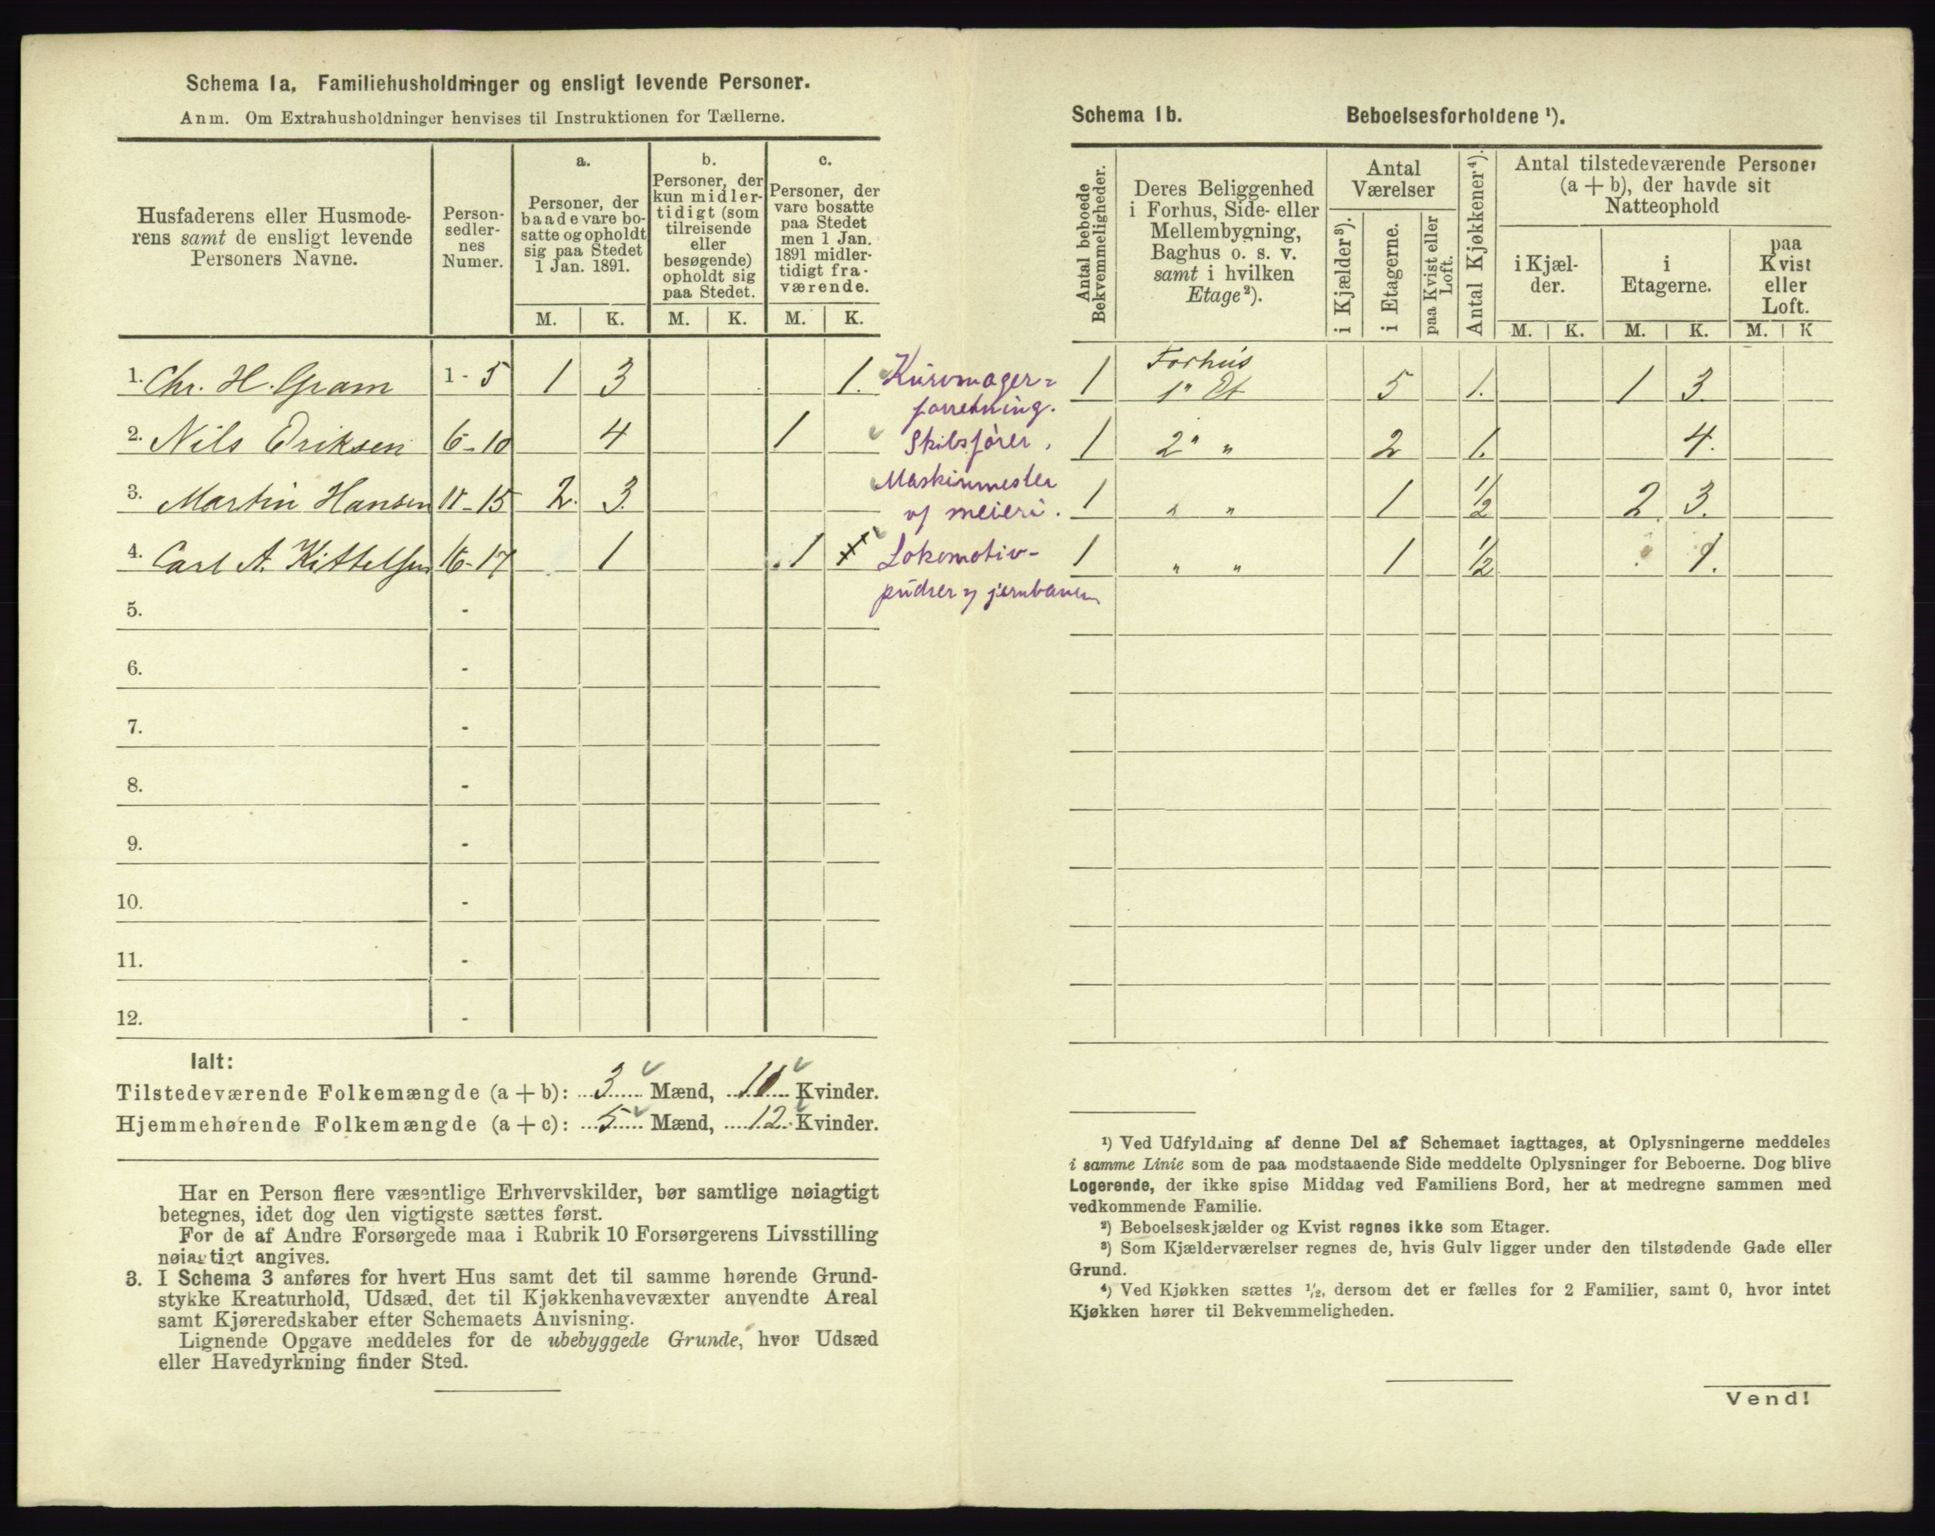 Schema 1a, Familiehusholdninger og ensligt levende Personer.
Anm. Om Extrahusholdninger henvises til Instruktionen for Tællerne.
Husfaderens eller Husmode-
rens samt de ensligt levende
Personers Navne.
Person-
sedler-
nes
Numer.
a.
Personer, der
baade vare bo-
satte og opholdt
sig paa Stedet
1 Jan. 1891.
b.
Personer, der
kun midler-
tidigt (som
tilreisende
eller
besøgende)
opholdt sig
paa Stedet.
c.
Personer, der
vare bosatte
paa Stedet
men 1 Jan.
1891 midler-
tidigt fra-
værende.
M. K. M. K. M. K.
1. Chr. H. Gram 1 - 5 1 3 1. Kurvmager=
forretning.
2. Nils Eriksen 6 - 10 4 1 Skibsfører.
3. Martin Hansen 11 - 15 2. 3. Maskinmester
v/ meieri.
4. Carl A. Kittelsen 16 - 17 1 1 Lokomotiv-
pudser v/ jernbanen
5. -
6. -
7. -
8. -
9. -
10. -
11. -
12. -
Ialt:
Tilstedeværende Folkemængde (a + b): 3 Mænd, 11 Kvinder.
Hjemmehørende Folkemængde (a + c): 5 Mænd, 12 Kvinder.
Har en Person flere væsentlige Erhvervskilder, bør samtlige nøiagtigt
betegnes, idet dog den vigtigste sættes først.
For de af Andre Forsørgede maa i Rubrik 10 Forsørgerens Livsstilling
nøiagtigt angives.
3. I Schema 3 anføres for hvert Hus samt det til samme hørende Grund-
stykke Kreaturhold, Udsæd, det til Kjøkkenhavevæxter anvendte Areal
samt Kjøreredskaber efter Schemaets Anvisning.
Lignende Opgave meddeles for de ubebyggede Grunde, hvor Udsæd
eller Havedyrkning finder Sted.
Schema 1b. Beboelsesforholdene ¹).
Antal beboede
Bekvemmeligheder.
Deres Beliggenhed
i Forhus, Side- eller
Mellembygning,
Baghus o. s. v.
samt i hvilken
Etage²).
Antal
Værelser
i Kjælder³).
i Etagerne.
paa Kvist eller
Loft.
Antal Kjøkkener⁴).
Antal tilstedeværende Personer
(a + b), der havde sit
Natteophold
i Kjæl-
der.
i
Etagerne.
paa
Kvist
eller
Loft.
M. K. M. K. M. K
1 Forhus
1" Et 5 1. 1 3.
1 2" " 2 1. 4.
1 " " 1 1/2 2. 3.
1 " " 1 1/2 1.
¹) Ved Udfyldning af denne Del af Schemaet iagttages, at Oplysningerne meddeles
i samme Linie som de paa modstaaende Side meddelte Oplysninger for Beboerne. Dog blive
Logerende, der ikke spise Middag ved Familiens Bord, her at medregne sammen med
vedkommende Familie.
²) Beboelseskjælder og Kvist regnes ikke som Etager.
³) Som Kjælderværelser regnes de, hvis Gulv ligger under den tilstødende Gade eller
Grund.
⁴) Ved Kjøkken sættes ½, dersom det er fælles for 2 Familier, samt 0, hvor intet
Kjøkken hører til Bekvemmeligheden.
Vend!